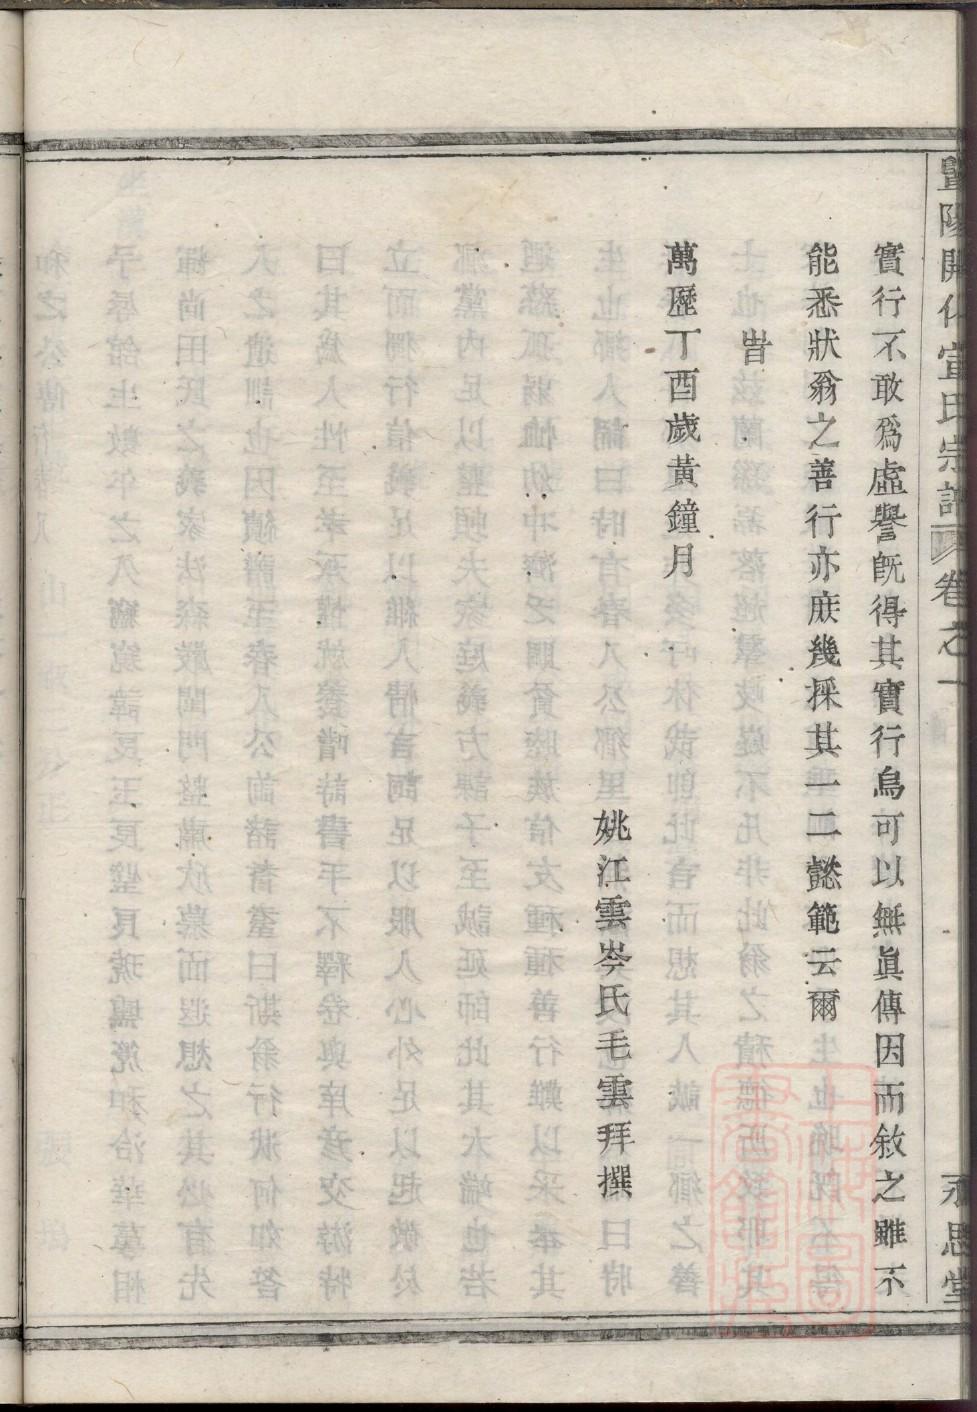 暨陽開化宣氏宗譜 卷之一 永思堂
實行不敢爲虛譽旣得其實行烏可以無眞傳因而敘之雖不
能悉狀翁之善行亦庶幾採其一二懿範云爾
旹
萬歷丁酉歲黃鐘月
姚江雲岑氏毛雲拜撰